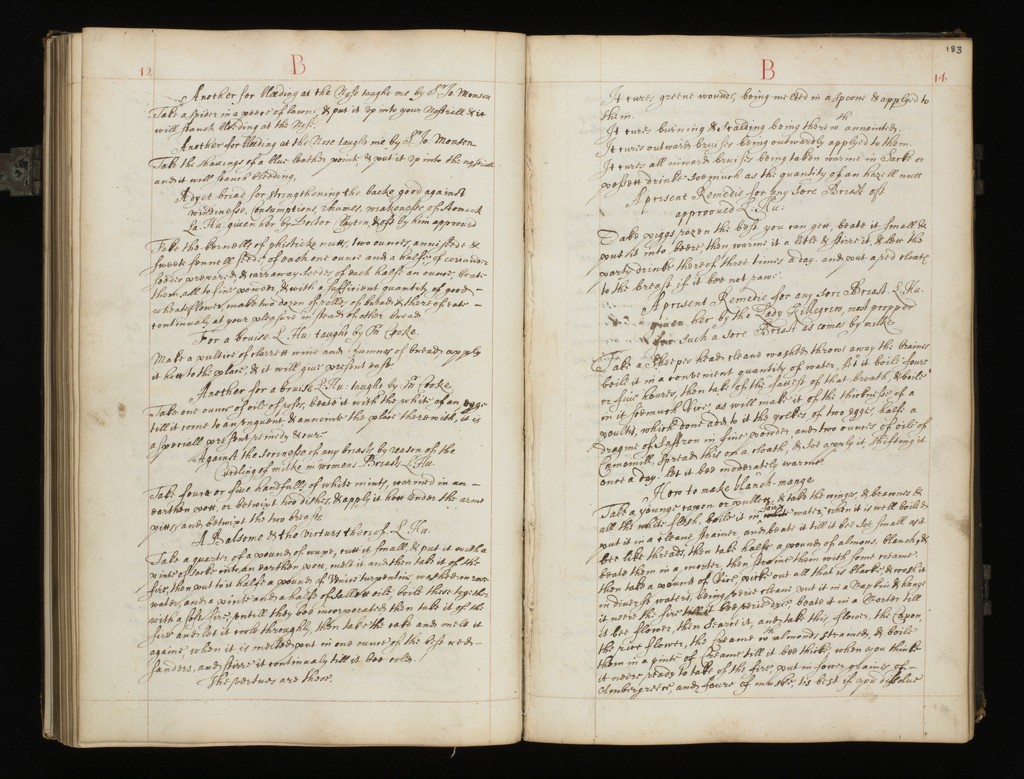 12
B
Another for bleeding at the Nose taught me by Sr Jo. Monson
Take a spider in a peece of lawne, & put it up into your Nostrill & it
will stanch bleeding at the Nose.
Another for bleeding at the Nose taught me by Sr Jo. Monson
Take the shavings of a blue leather pointe & put it up into the nostrill
and it will stanch bleeding,
A dyet bread for strengthening the backe good against
windinesse, Consumptions, rhumes, weaknesse of stomack
La. Hu. given her by Doctor Clayton, & oft by him approved
Take the kernells of phisticke nutts, two ounces, annisseeds &
sweete fennell seeds of each one ounce and a halfe, of coriander
seedes prepared & carraway seedes of each halfe an ounce, beate
them all to fine powder, & with a sufficient quantity of good
wheate flower, make two dozen of rolles of bread & thereof eate
continualy at your pleasure in stead of other bread
For a bruise L. Hu: taught by Mr Cooke
Make a pultice of clarrett wine and crummes of bread, apply
it hott to the place, & it will give present ease
Another for a bruise L. Hu: taught by Mr Cooke
Take one ounce of oile of roses, beate it with the white of an egge
till it come to an unguent, & annointe the place therewith, it is
a speciall present remedy & cure
Against the sorenesse of any breasts by reason of the
Curdling of milke in womens Breasts L. Hu:
Take foure or five handfulls of white mints, warmed in an
earthen pott, or betwixt two dishes, & apply it hott under the arme
pitts, and betwixt the two breasts.
A Balsome & the vertues thereof. L. Hu.
Take a quarter of a pound of waxe, cutt it small, & put it with a
pinte of Sacke into an earthen pott, melt it and then take it of the
fire, then put to it halfe a pound of Venice turpentine washed in rose
water, and a pinte and a halfe of Sallett oile, boile these together
with a soft fire, untill they bee incorporated, then take it of the
fire and let it coole throughly, then take the cake and melt it
againe, when it is melted put in one ounce of the best red
Sanders, and stirre it continualy till it bee cold.
The vertues are these.
183
B
14
It cures greene wounds, being melted in a spoone & applyed to
them.
It cures burning & scalding being therewth annointed,
It cures outward bruises being outwardly applyed to them.
It cures all inward bruises being taken warme in Sacke or
possett drinke soe much as the quantity of an hazell nutt
A present Remedie for any sore Breast oft
approoved L. Hu:
Take piggs the best you can gett, beate it small &
put it into beere, then warme it a little & stirre it, & lett the
party drinke thereof three times a day. and put a red cloath
to the breast if it bee not rawe.
A present Remedie for any sore Breast L. Hu.
given her by the Lady Killegrew, most propper
for such a sore Breast as comes by milke
Take a Sheepes head cleane washed, throwe away the braines
boile it in a convenient quantity of water, let it boile foure
or five houres, then take of the fattest of that breath, & boile
in it soe much Rice as will make it of the thicknesse of a
poultis, which done add to it the yolkes of two egges, halfe a
dragme of Saffron in fine powder and two ounces of oile of
Camomill, spread this on a cloath, & soe apply it, shifting it
once a day. let it bee moderately warme
How to make blanch-mange
Take a younge capon or pullett, & take the winges, & brawnes &
all the white flesh, boile it in faire water, when it is well boiled
put it in a cleane strainer, and beate it till it bee soe small as it
bee like threads, then take halfe a pound of almons, blanch, &
beate them in a morter, then straine them with some creame.
then take a pound of Rice, picke out all that is blacke, & wash it
in divers waters, being verie cleane put it in a Napkin & hange
it neere the fire till it bee very dry, beate it in a Morter till
it bee flower, then Searce it, and take this flower, the Capon,
the rice flower, the Creame wth almonds, strained, & boile
them in a pinte of Creame till it bee thicke, when you thinke
it neere ready to take of the fire, put in fower graines of
Ambergreece, and foure of muske, tis best if you dissolve